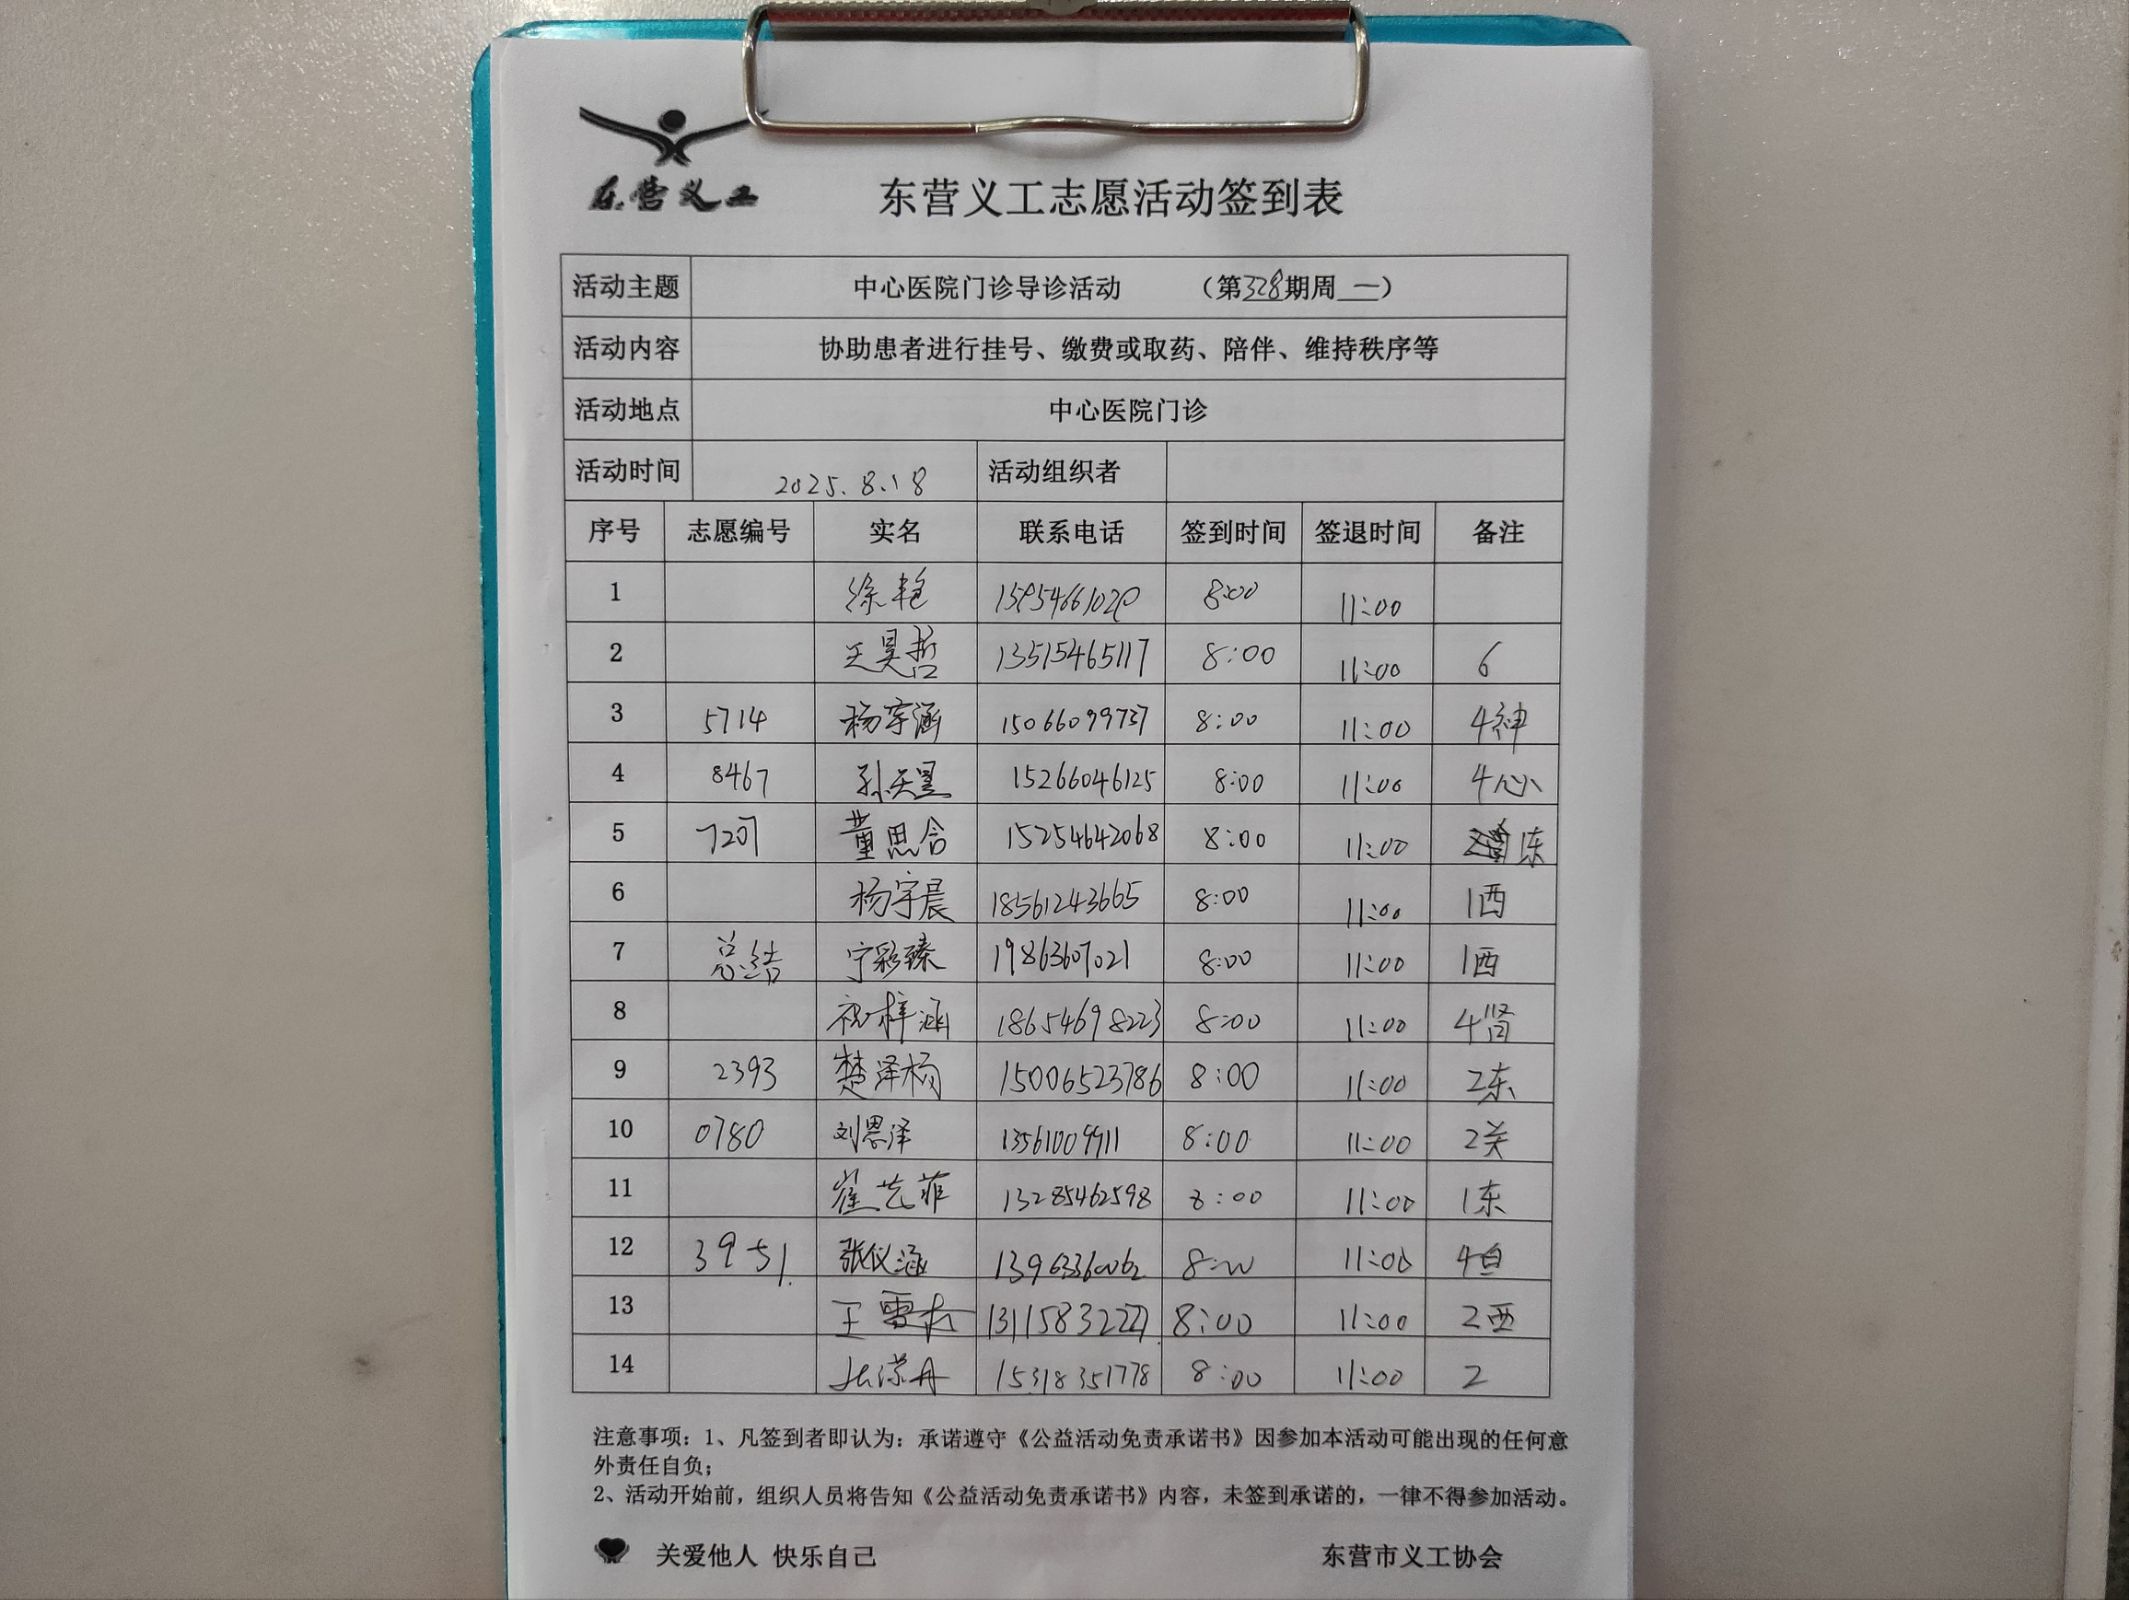 东营义工
东营义工志愿活动签到表
活动主题 中心医院门诊导诊活动 （第328期周一）
活动内容 协助患者进行挂号、缴费或取药、陪伴、维持秩序等
活动地点 中心医院门诊
活动时间 2025.8.18 活动组织者
序号 志愿编号 实名 联系电话 签到时间 签退时间 备注
1 徐艳 8:00 11:00
2 王昊哲 13515465117 8:00 11:00 6
3 5714 杨宇涵 15066099737 8:00 11:00 4神
4 8467 孙天昱 15266046125 8:00 11:00 4心
5 7207 董思含 15254642068 8:00 11:00 东
6 杨宇晨 18561243665 8:00 11:00 1西
7 总结 宁彩臻 19863607021 8:00 11:00 1西
8 祝梓涵 18654698223 8:00 11:00 4肾
9 2393 楚泽杨 15006523786 8:00 11:00 2东
10 0780 刘恩泽 13561009911 8:00 11:00 2关
11 崔艺菲 13285462598 8:00 11:00 1东
12 3951. 张仪涵 13963360062 8:00 11:00
13 王 13115832227 8:00 11:00 2西
14 15318351778 8:00 11:00 2
注意事项：1、凡签到者即认为：承诺遵守《公益活动免责承诺书》因参加本活动可能出现的任何意
外责任自负；
2、活动开始前，组织人员将告知《公益活动免责承诺书》内容，未签到承诺的，一律不得参加活动。
关爱他人 快乐自己 东营市义工协会